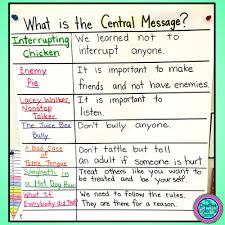 What is the Central Message?
Interrupting Chicken
We learned not to
interrupt anyone.
Enemy Pie
It is important to make
friends and not have enemies.
Lacey Walker,
Nonstop Talker
It is important to
listen.
The Juice Box
Bully
Don't bully anyone.
A Bad Case
of
Tattle Tongue
Don't tattle but tell
an adult if someone is hurt.
Spaghetti in
a Hot Dog Bun
Treat others like you want to
be treated and be yourself.
What If
Everybody did That?
We need to follow the rules.
They are there for a reason.